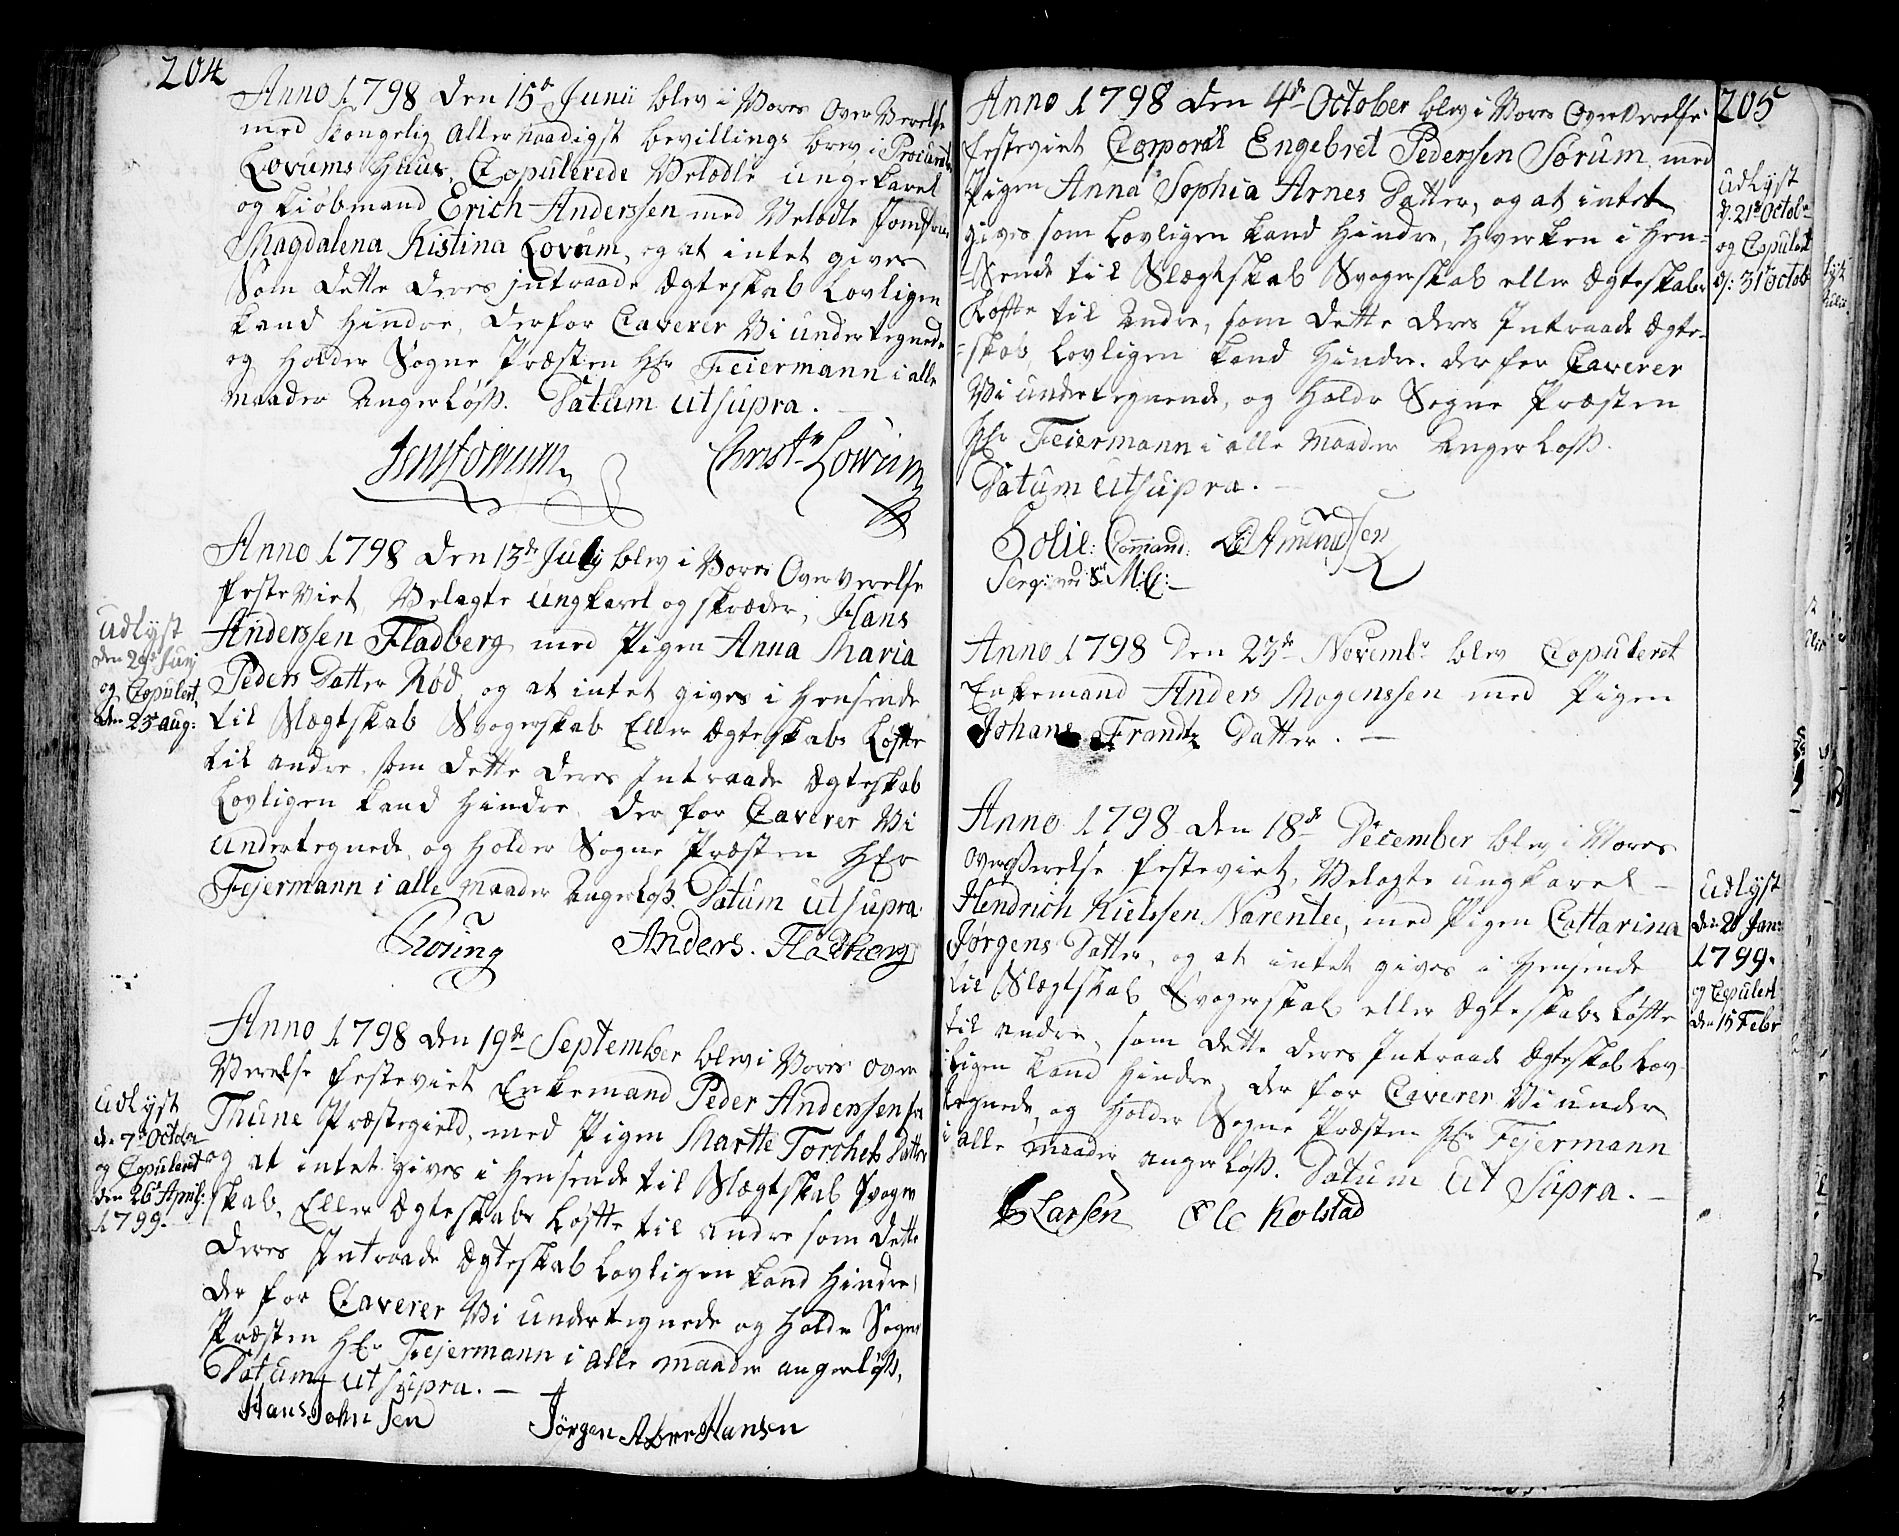 204
Anno 1798 den 15de Junii blev i Vores Over Verelse
med Kongelig Allernaadigst bevillings brev i Procurat
Lovums Huus, Copulerede Velædle ungekarel
og Kiøbmand Erich Anderssen med Velædle Jomfrue
Magdalena Kistina Lovum, og at intet gives
Som dette deres jntraade Ægteskab Lovligen
kand hindre, derfor Caverer Vi undertegnede
og holder Sogne Præsten Hr Feiermann i alle
maader Angerløss. Datum ut supra.
Jens Lowum Christn Lowum
Anno 1798 den 13de July blev i Vores Over verelse
festeviet, Velagte Ungkarel og skræder, Hans
Anderssen Fladberg med Pigen Anna Maria
Peders Datter Rød, og at intet gives i Hensende
til Slægtskab Svogerskab Eller Ægteskabs Løfte
til andre, som dette deres Intraade Ægteskab
Lovligen kand hindre, der for Caverer Vi
undertegnede, og holder Sogne Præsten Hr
Fejermann i alle maader Angerløss. Datum ut supra.
Anders. Fladberg
udlyst
den 29de July
og Copulert
den 23 aug:
Anno 1798 den 19de September blev i Vores Over
Verelse festeviet Enkemand Peder Anderssen fra
Thune Præstegield, med Pigen Marthe Torchels Datter
og at intet gives i Hensende til Slægtskab Svoger
skab, Eller Ægteskabs Løfte til andre som dette
deres Intraade Ægteskab Lovligen kand hindre,
der for Caverer Vi undertegnede og holder Sogne
Præsten Hr Fejermann i alle maader angerløss,
Datum ut supra.
Hans Johnsen Jørgen Hansen
udlyst
de 7de Octobr
og Copulert
den 26 April:
1799.
205
Anno 1798 den 4de October blev i Vores Over Verelse
festeviet Corporal Engebret Pederssen Sørum, med
Pigen Anna Sophia Arnes Datter, og at intet
gives som Lovligen kand hindre, hverken i Hen-
-Sende til Slægtskab Svogerskab eller Ægteskabs
Løfte til Andre, som dette deres Intraade Ægte-
-skab Lovligen kand hindre. derfor Caverer
Vi undertegnende, og holder Sogne Præsten
Hr Feiermann i alle maader Angerløss.
Datum ut supra.
Solie: Command: Amundsen
Serg: ved M:C:
udlyst
d. 21de Octobr
og Copulert
d: 31 Octobr
Anno 1798 den 23de Novembr blev Copulerit
Enkemand Anders Mogenssen med Pigen
Johane Frandtz Datter.
Anno 1798 den 18de December blev i Vores
overværelse festeviet, Velagte ungkarel
Hendrich Nielssen Narentee, med Pigen Cattarina
Jørgens Datter, og at intet gives i Hensende
til Slægtskab Svogerskab eller Ægteskabs Løfte
til andre, som dette deres Intraade Ægteskab Lov
ligen kand hindre, der for Caverer Vi under
tegnede, og holder Sogne Præsten Hr Fejermann
i alle maader angerløss. Datum ut supra.
Larsen Ole Kolstad
udlyst
den 20 Jan:
1799.
og Copulert
den 15 Febr